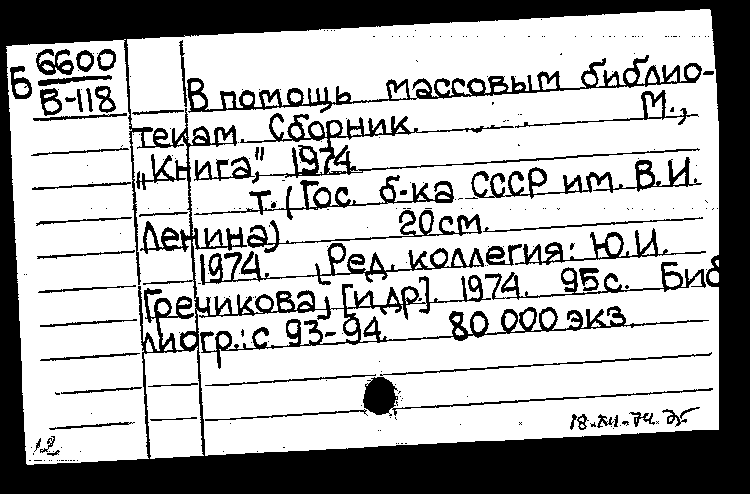 Б 6600
В-118
В помощь массовым библио-
текам. Сборник. М.,
„Книга", 1974.
т. (Гос. б-ка СССР им. В.И.
Ленина). 20 см.
1974. [Ред. коллегия: Ю.И.
Гречикова, [и др.]. 1974. 95с. Биб
лиогр.: с. 93-94. 80 000 экз.
12